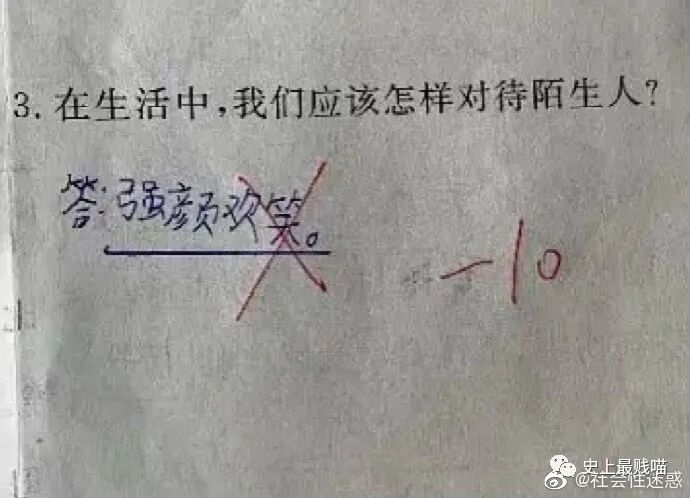 3. 在生活中,我们应该怎样对待陌生人?
答:强颜欢笑。
-10
史上最贱喵
@社会性迷惑